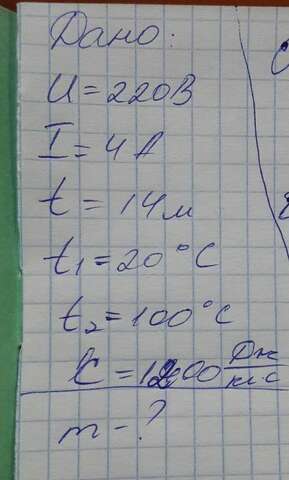 Дано:
U = 220 В
I = 4 А
t = 14 м
t₁ = 20 °C
t₂ = 100 °C
C = Дж/кг°C
m - ?